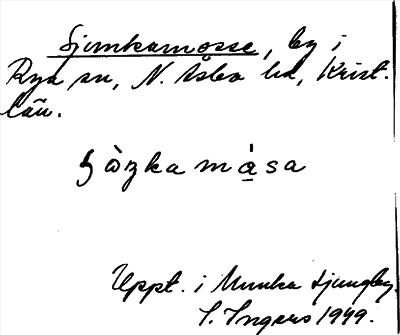 Sjunkamosse, by i
Rya sn, N. Åsbo hd, Krist.
län.
Uppt. i Munka Ljungby.
S. Ingers 1949.